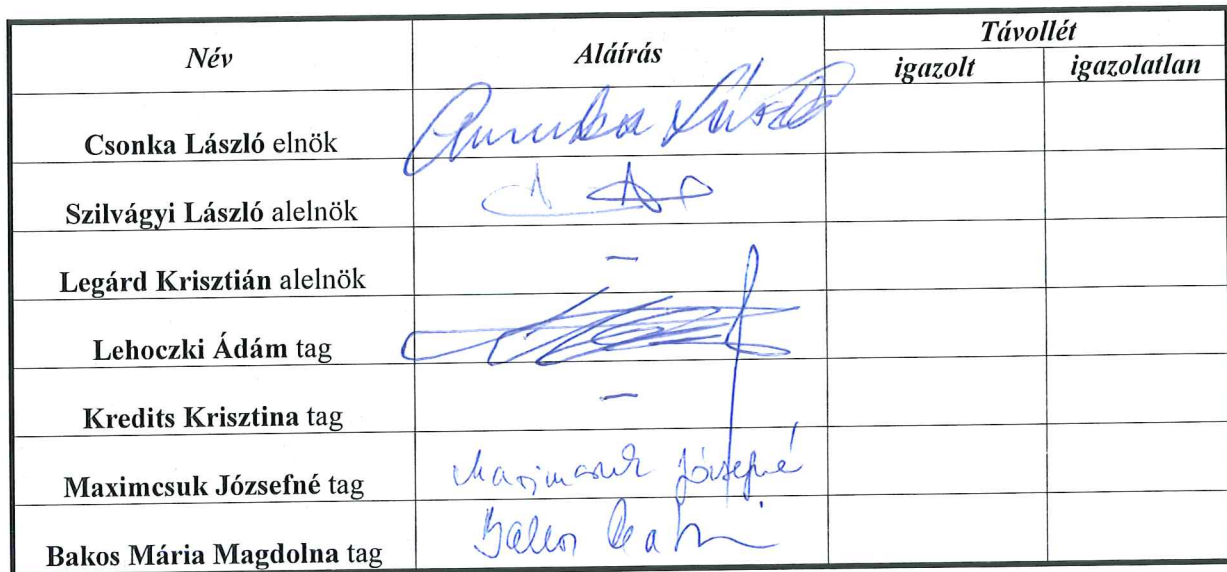 Név Aláírás Távollét
igazolt igazolatlan
Csonka László elnök
Szilvágyi László alelnök
Legárd Krisztián alelnök –
Lehoczki Ádám tag
Kredits Krisztina tag –
Maximcsuk Józsefné tag Maximcsuk Józsefné
Bakos Mária Magdolna tag Bakos